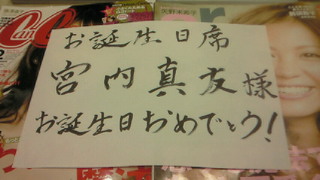 お誕生日席
宮内真友様
お誕生日おめでとう!